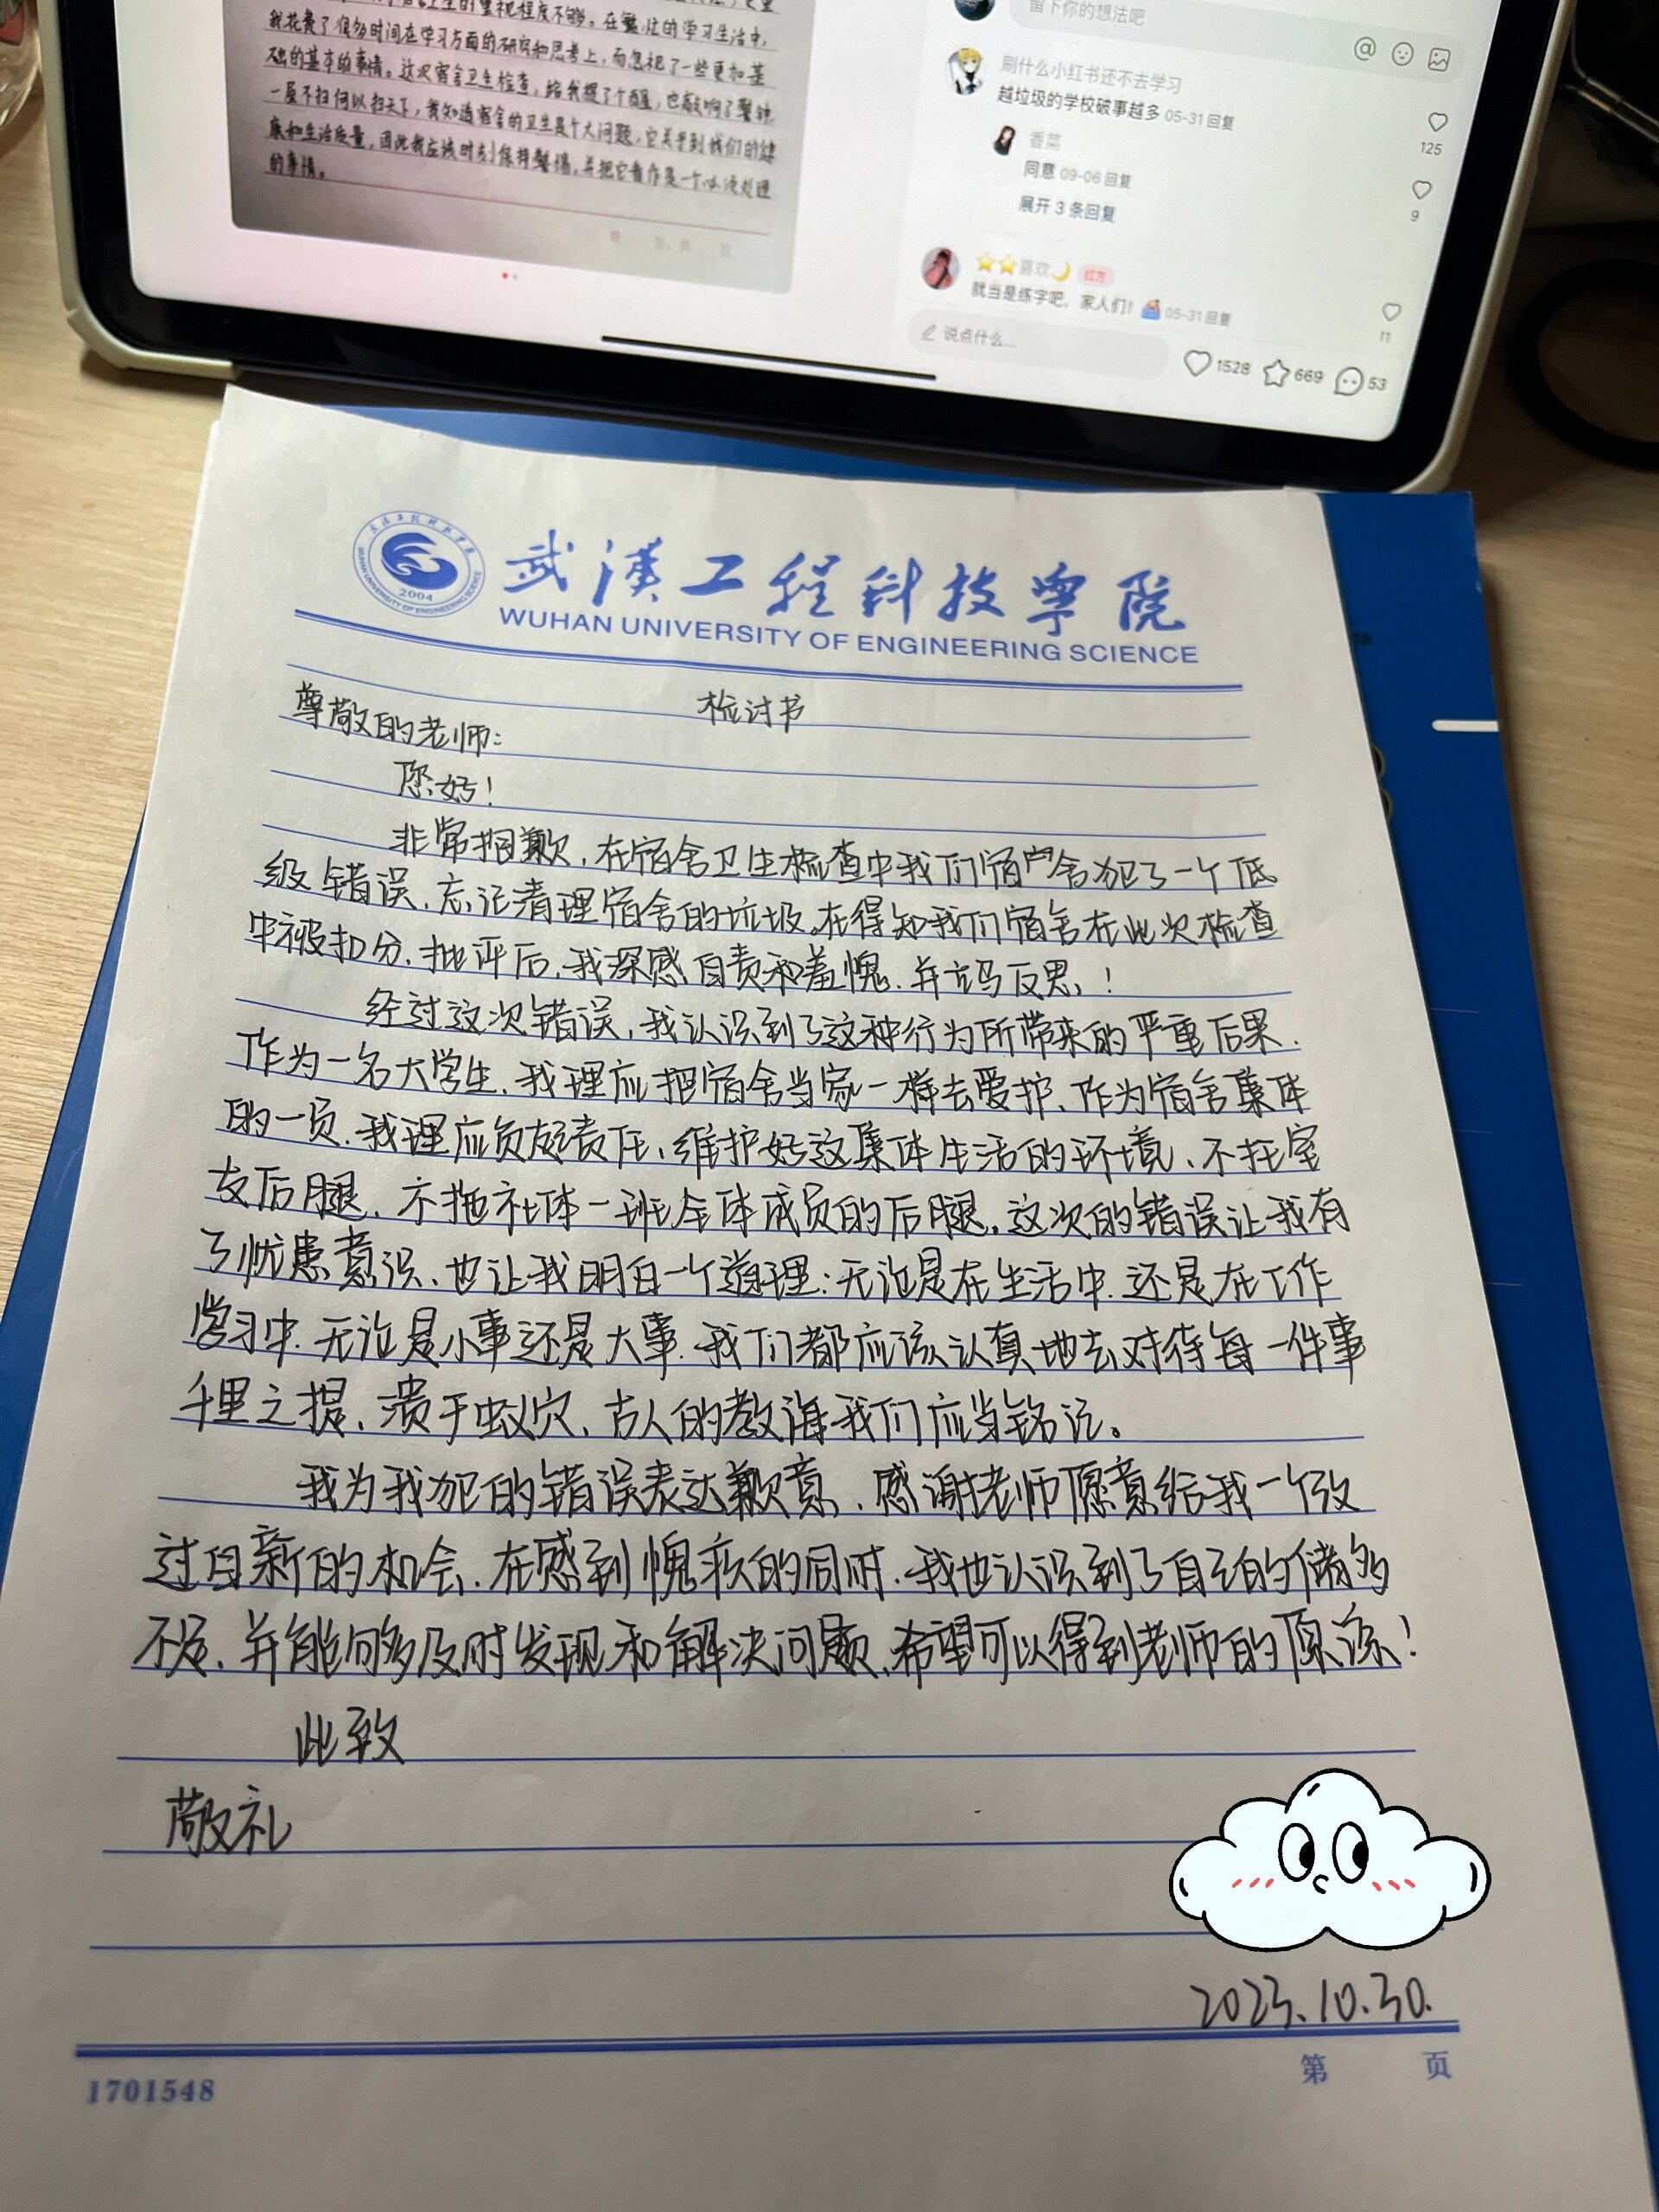 我花费了很多时间在学习方面的研究和思考上，而忽视了一些更加基
础的基本的事情。这次宿舍卫生检查，给我提了个醒，也敲响了警钟
一屋不扫何以扫天下，我知道宿舍的卫生是个大问题，它关乎到我们的健
康和生活质量，因此我应该时刻保持警惕，并把它看作是一个必须处理
的事情。
留下你的想法吧
刷什么小红书还不去学习
越垃圾的学校破事越多 05-31 回复
125
香菜
同意 09-06 回复
9
展开 3 条回复
喜欢
就当是练字吧，家人们！ 05-31 回复
11
说点什么...
1528 669 53
武汉工程科技学院
WUHAN UNIVERSITY OF ENGINEERING SCIENCE
2004
检讨书
尊敬的老师：
您好！
非常抱歉，在宿舍卫生检查中我们宿舍犯了一个低
级错误、忘记清理宿舍的垃圾。在得知我们宿舍在此次检查
中被扣分、批评后，我深感自责和羞愧、并立马反思！
经过这次错误，我认识到了这种行为所带来的严重后果、
作为一名大学生、我理应把宿舍当家一样去爱护、作为宿舍集体
的一员、我理应负起责任、维护好这集体生活的环境、不拖室
友后腿、不拖社体一班全体成员的后腿。这次的错误让我有
了忧患意识、也让我明白一个道理：无论是在生活中、还是在工作
学习中、无论是小事还是大事、我们都应该认真地去对待每一件事
千里之提、溃于蚁穴、古人的教诲我们应当铭记。
我为我犯的错误表达歉意、感谢老师愿意给我一个改
过自新的机会、在感到愧疚的同时、我也认识到了自己的诸多
不足、并能够多及时发现和解决问题、希望可以得到老师的原谅！
此致
敬礼
2023.10.30.
第 页
1701548